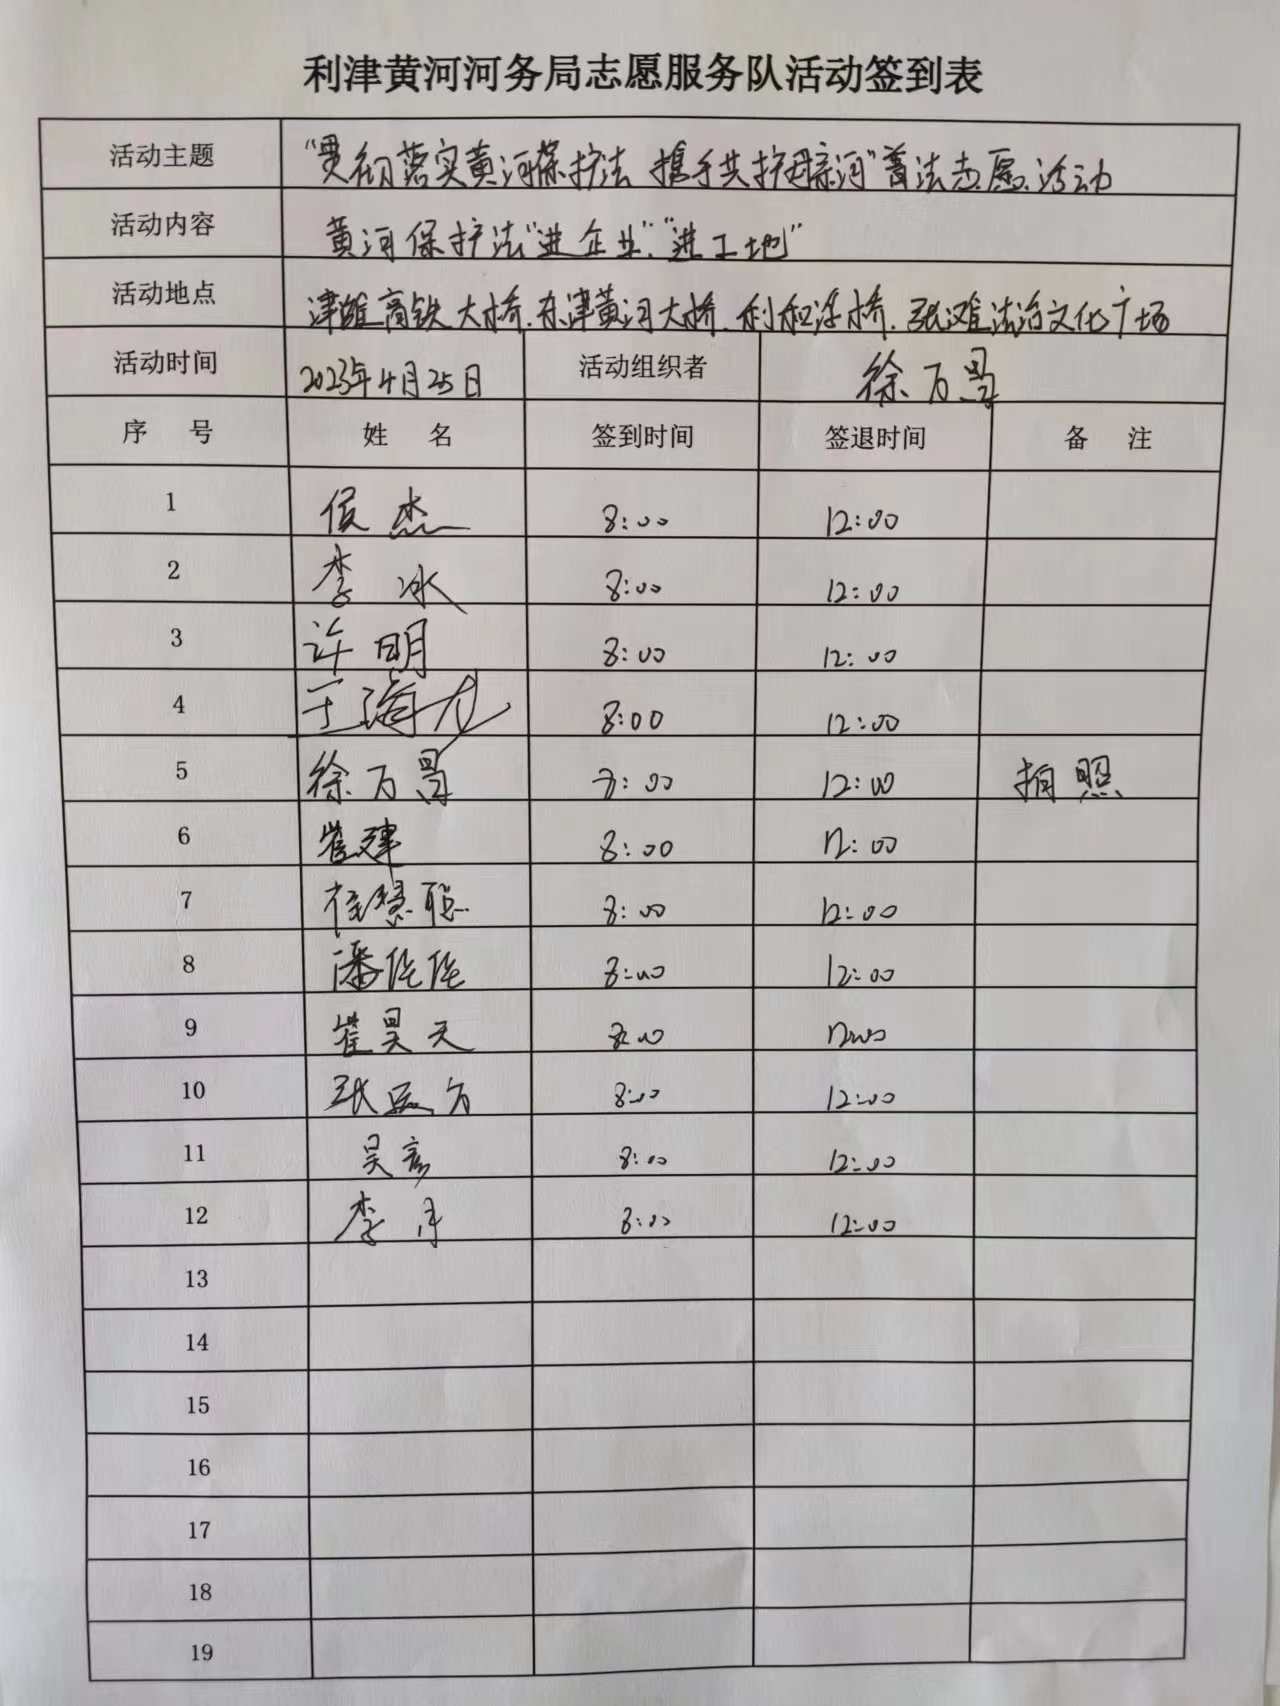 利津黄河河务局志愿服务队活动签到表
活动主题 “贯彻落实黄河保护法 携手共护母亲河”普法志愿活动
活动内容 黄河保护法“进企业”、“进工地”
活动地点 津潍高铁大桥、东津黄河大桥、利和浮桥、张滩法治文化广场
活动时间 2023年4月25日 活动组织者 徐万昌
序 号 姓 名 签到时间 签退时间 备 注
1 侯杰 8:00 12:00
2 李冰 8:00 12:00
3 许明 8:00 12:00
4 王海龙 8:00 12:00
5 徐万昌 8:00 12:00 拍照
6 崔建 8:00 12:00
7 慧聪 8:00 12:00
8 潘佳佳 8:00 12:00
9 崔昊天 8:00 12:00
10 张 8:00 12:00
11 吴彦 8:00 12:00
12 李月 8:00 12:00
13
14
15
16
17
18
19